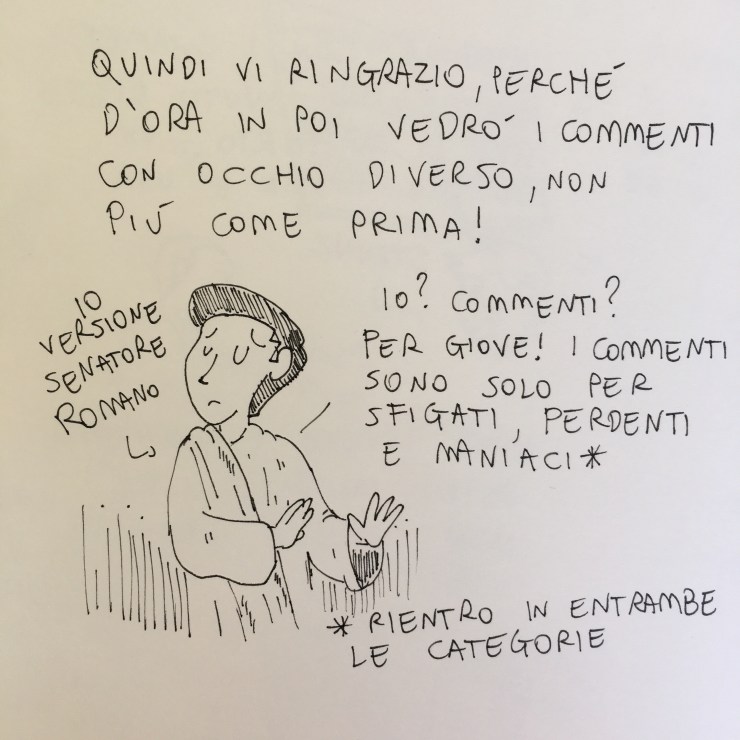 QUINDI VI RINGRAZIO, PERCHÉ
D'ORA IN POI VEDRÓ I COMMENTI
CON OCCHIO DIVERSO, NON
PIÚ COME PRIMA!
IO
VERSIONE
SENATORE
ROMANO
IO? COMMENTI?
PER GIOVE! I COMMENTI
SONO SOLO PER
SFIGATI, PERDENTI
E MANIACI*
* RIENTRO IN ENTRAMBE
LE CATEGORIE